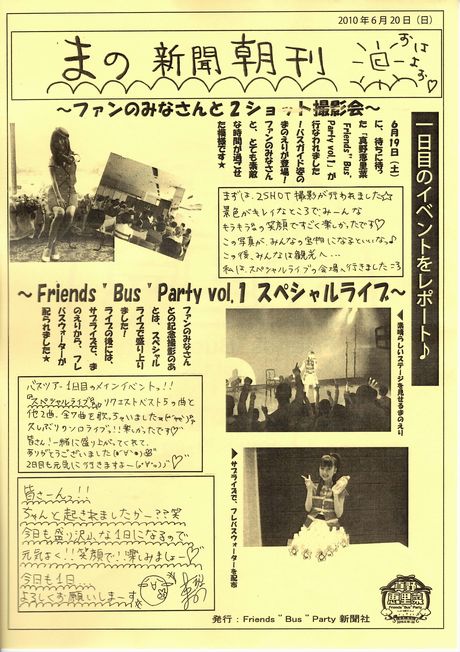 2010年6月20日（日）
まの新聞朝刊
おはよぉ♡
～ファンのみなさんと2ショット撮影会～
一日目のイベントをレポート♪
6月19日（土）
に、待ちに待っ
た「真野恵里菜
Friends" Bus"
Party vol.1」が
行なわれました
！バスガイド姿の
まのえりが登場！
ファンのみなさん
と、とても素敵
な時間が過ごせ
た模様です★
まずは、2SHOT撮影が行われました☆
景色がキレイなところでみーんな
キラキラの笑顔ですごく楽しかったです♡
この写真が、みんなの宝物になるといいな♪
この後、みんなは観光へ…
私は、スペシャルライブの会場へ行きましたころ
～Friends" Bus" Party vol.1 スペシャルライブ～
ファンのみなさん
との記念撮影のあ
とは、スペシャル
ライブで盛り上り
ました！
ライブの後には、
サプライズで、ま
のえりから、フレ
バスウォーターが
配られました★
▲素晴らしいステージを見せるまのえり
バスツアー1日目のメインイベント!!
"スペシャルライブ"リクエストベスト5の曲と
他2曲、全7曲を歌っちゃいました
久しぶりのソロライブ!!楽しかったです♡
皆さん！一緒に盛り上がってくれて、
ありがとうございました
2日目も元気に行きますよー♡
▲サプライズで、フレバスウォーターを配布
皆さーんっ!!
ちゃんと起きれましたかー??笑
今日も盛り沢山な1日になるので
元気よく!!笑顔で!!楽しみましょー♡
今日も1日…
よろしくお願いしまーす
真野恵里菜
Friends" Bus" Party
発行：Friends" Bus" Party 新聞社